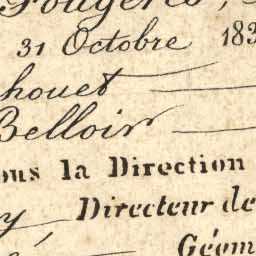 Fougères,
31 Octobre 183
houet
Belloir
ous la Direction
y Directeur de
é Géom